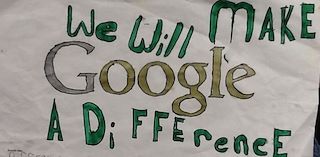 We Will MAKE
Google
A DiFFErencE